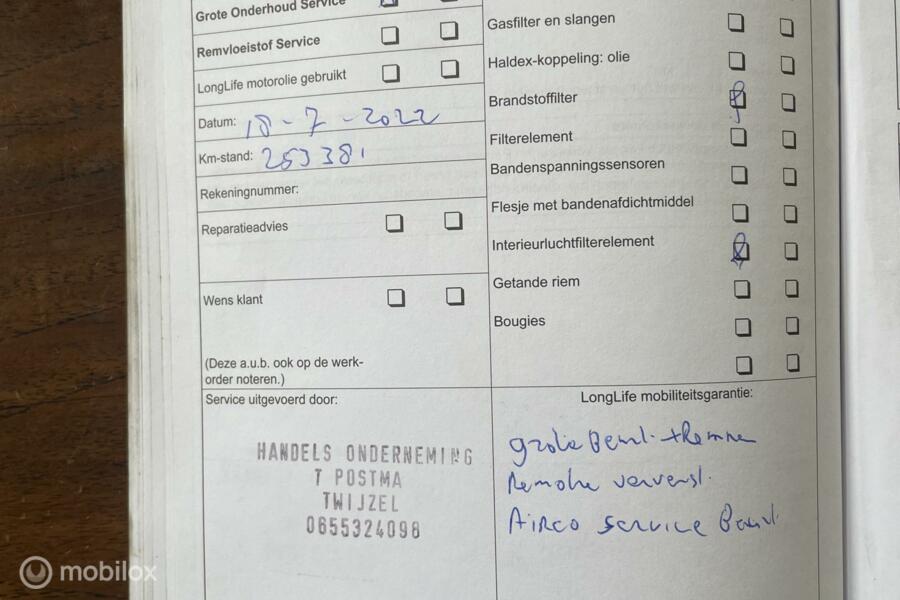 Grote Onderhoud Service
Remvloeistof Service
LongLife motorolie gebruikt
Datum: 18-7-2022
Km-stand: 253381
Rekeningnummer:
Reparatieadvies
Wens klant
(Deze a.u.b. ook op de werk-
order noteren.)
Gasfilter en slangen
Haldex-koppeling: olie
Brandstoffilter
Filterelement
Bandenspanningssensoren
Flesje met bandenafdichtmiddel
Interieurluchtfilterelement
Getande riem
Bougies
Service uitgevoerd door:
HANDELS ONDERNEMING
T POSTMA
TWIJZEL
0655324098
LongLife mobiliteitsgarantie:
grote Beurt + Remmen
Remolie ververst.
Airco service Beurt
mobilox